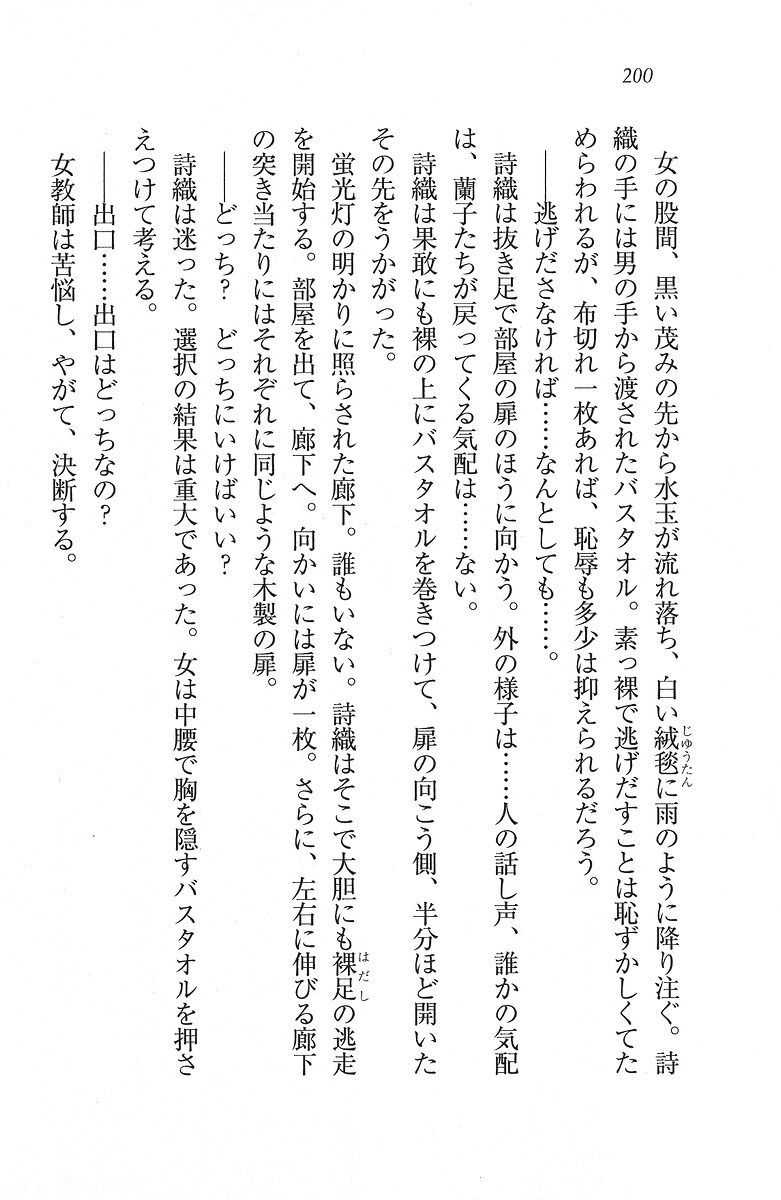 200
女の股間、黒い茂みの先から水玉が流れ落ち、白い絨毯に雨のように降り注ぐ。詩
じゅうたん
織の手には男の手から渡されたバスタオル。素っ裸で逃げだすことは恥ずかしくてた
めらわれるが、布切れ一枚あれば、恥辱も多少は抑えられるだろう。
――逃げださなければ……なんとしても……。
詩織は抜き足で部屋の扉のほうに向かう。外の様子は……人の話し声、誰かの気配
は、蘭子たちが戻ってくる気配は……ない。
詩織は果敢にも裸の上にバスタオルを巻きつけて、扉の向こう側、半分ほど開いた
その先をうかがった。
蛍光灯の明かりに照らされた廊下。誰もいない。詩織はそこで大胆にも裸足の逃走
はだし
を開始する。部屋を出て、廊下へ。向かいには扉が一枚。さらに、左右に伸びる廊下
の突き当たりにはそれぞれに同じような木製の扉。
――どっち？　どっちにいけばいい？
詩織は迷った。選択の結果は重大であった。女は中腰で胸を隠すバスタオルを押さ
えつけて考える。
――出口……出口はどっちなの？
女教師は苦悩し、やがて、決断する。